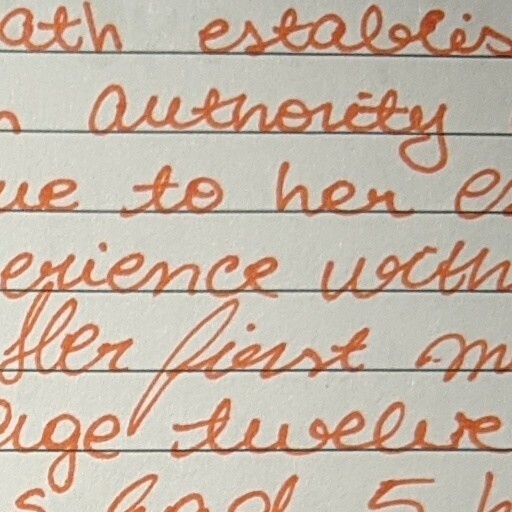 ath establis
n authority
ue to her es
erience with
fter first m
age twelve
s had 5 h